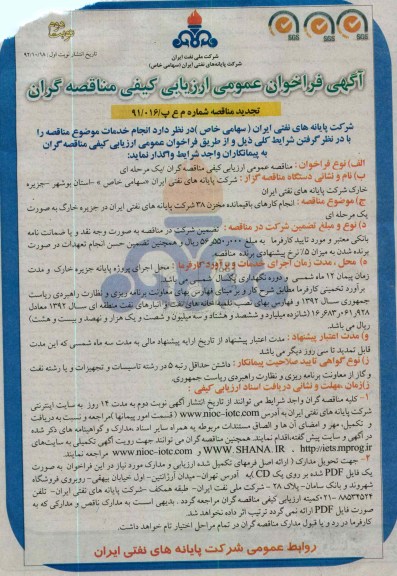 نوبت دوم
تاریخ انتشار نوبت اول: ۹۲/۱۰/۱۸
شرکت ملی نفت ایران
شرکت پایانه‌های نفتی ایران (سهامی خاص)
SGS SGS SGS
آگهی فراخوان عمومی ارزیابی کیفی مناقصه گران
تجدید مناقصه شماره م ع پ/۹۱/۰۱۶
شرکت پایانه های نفتی ایران (سهامی خاص) در نظر دارد انجام خدمات موضوع مناقصه را
با در نظر گرفتن شرایط کلی ذیل و از طریق فراخوان عمومی ارزیابی کیفی مناقصه گران
به پیمانکاران واجد شرایط واگذار نماید:
الف) نوع فراخوان : مناقصه عمومی ارزیابی کیفی مناقصه گران /یک مرحله ای
ب) نام و نشانی دستگاه مناقصه گزار : شرکت پایانه های نفتی ایران «سهامی خاص » -استان بوشهر -جزیره
خارک شرکت پایانه های نفتی ایران
ج) موضوع مناقصه : انجام کارهای باقیمانده مخزن ۳۸ شرکت پایانه های نفتی ایران در جزیره خارگ به صورت
یک مرحله ای
د) نوع و مبلغ تضمین شرکت در مناقصه : تضمین شرکت در مناقصه به صورت وجه نقد و یا ضمانت نامه
بانکی معتبر و مورد تایید کارفرما به مبلغ ۵۶۰,۵۵۰,۰۰۰ ریال و همچنین تضمین حسن انجام تعهدات در صورت
برنده شدن به میزان ۵٪ نرخ پیشنهادی برنده مناقصه.
ه) محل ، مدت زمان اجرای خدمات و برآورد کارفرما : محل اجرای پروژه پایانه جزیره خارک و مدت
زمان پیمان ۱۲ ماه شمسی و دوره نگهداری یکسال شمسی می باشد.
برآورد تخمینی کارفرما مطابق شرح کار و بر مبنای فهارس بهای معاونت برنامه ریزی و نظارت راهبردی ریاست
جمهوری سال ۱۳۹۲ و فهارس بهای نصب تلمبه خانه های نفت و انبارهای نفت منطقه ای سال ۱۳۹۲ معادل
۱۶,۶۸۳,۰۶۱,۹۲۸ (شانزده میلیارد و ششصد و هشتاد و سه میلیون و شصت و یک هزار و نهصد و بیست و هشت)
ریال می باشد.
و) مدت اعتبار پیشنهاد : مدت اعتبار پیشنهاد از تاریخ ارایه پیشنهاد مالی به مدت سه ماه شمسی که این مدت
قابل تمدید تا سی روز دیگر می باشد
ز) نوع گواهی تایید صلاحیت پیمانکار : داشتن حداقل رتبه ۵ در رشته تاسیسات و تجهیزات و یا رشته نفت
و گاز از معاونت برنامه ریزی و نظارت راهبردی ریاست جمهوری.
ژ) زمان ،مهلت و نشانی دریافت اسناد ارزیابی کیفی :
۱- کلیه مناقصه گران واجد شرایط می توانند از تاریخ انتشار آگهی نوبت دوم به مدت ۱۴ روز به سایت اینترنتی
شرکت پایانه های نفتی ایران به آدرس www.nioc-iotc.com (قسمت امور پیمانها )مراجعه و نسبت به دریافت
و تکمیل، مهر و امضای آن ها و الصاق مستندات مربوطه به همراه سایر اسناد ،مدارک و گواهینامه های ذکر شده
در آگهی و سایت پیش گفته،اقدام نمایند. همچنین مناقصه گران می توانند جهت رویت آگهی تکمیلی به سایت‌های
http://iets.mprog.ir ، WWW.SHANA.IR و www.nioc-iotc.com مراجعه نمایند.
۲- جهت تحویل مدارک ( ارائه اصل فرمهای تکمیل شده ارزیابی و مدارک مورد نیاز در این فراخوان به صورت
یک فایل PDF شده بر روی یک CD )به آدرس تهران- میدان آرژانتین- اول خیابان بیهقی- روبروی فروشگاه
شهروند و بانک سامان- پلاک ۲۸ - شرکت ملی نفت ایران- طبقه همکف -شرکت پایانه های نفتی ایران- تلفن
۰۲۱-۸۸۵۳۴۵۲۴ کمیته ارزیابی کیفی مناقصه گران مراجعه گردد. بدیهی است به مدارک ناقص و مدارکی که به
صورت فایل PDF ارائه نمی گردد ترتیب اثر داده نخواهد شد.
کارفرما در رد و یا قبول مدارک مناقصه گران در تمام مراحل اختیار تام خواهد داشت.
روابط عمومی شرکت پایانه های نفتی ایران